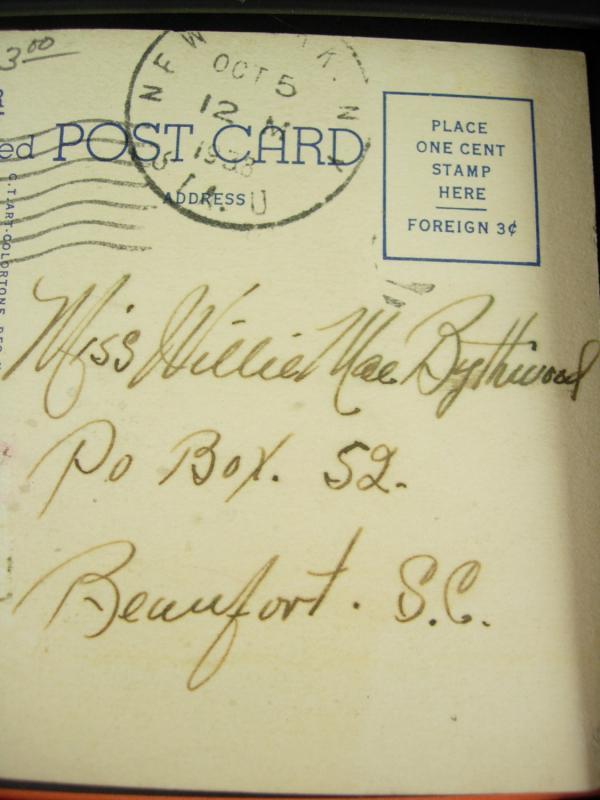 3.00
NEW YORK, N.Y.
OCT 5
12 M
1938
ed POST CARD
ADDRESS
PLACE
ONE CENT
STAMP
HERE
FOREIGN 3¢
C.T. ART-COLORTONE
Miss Willie Mae Bythwood
Po Box. 52.
Beaufort. S.C.